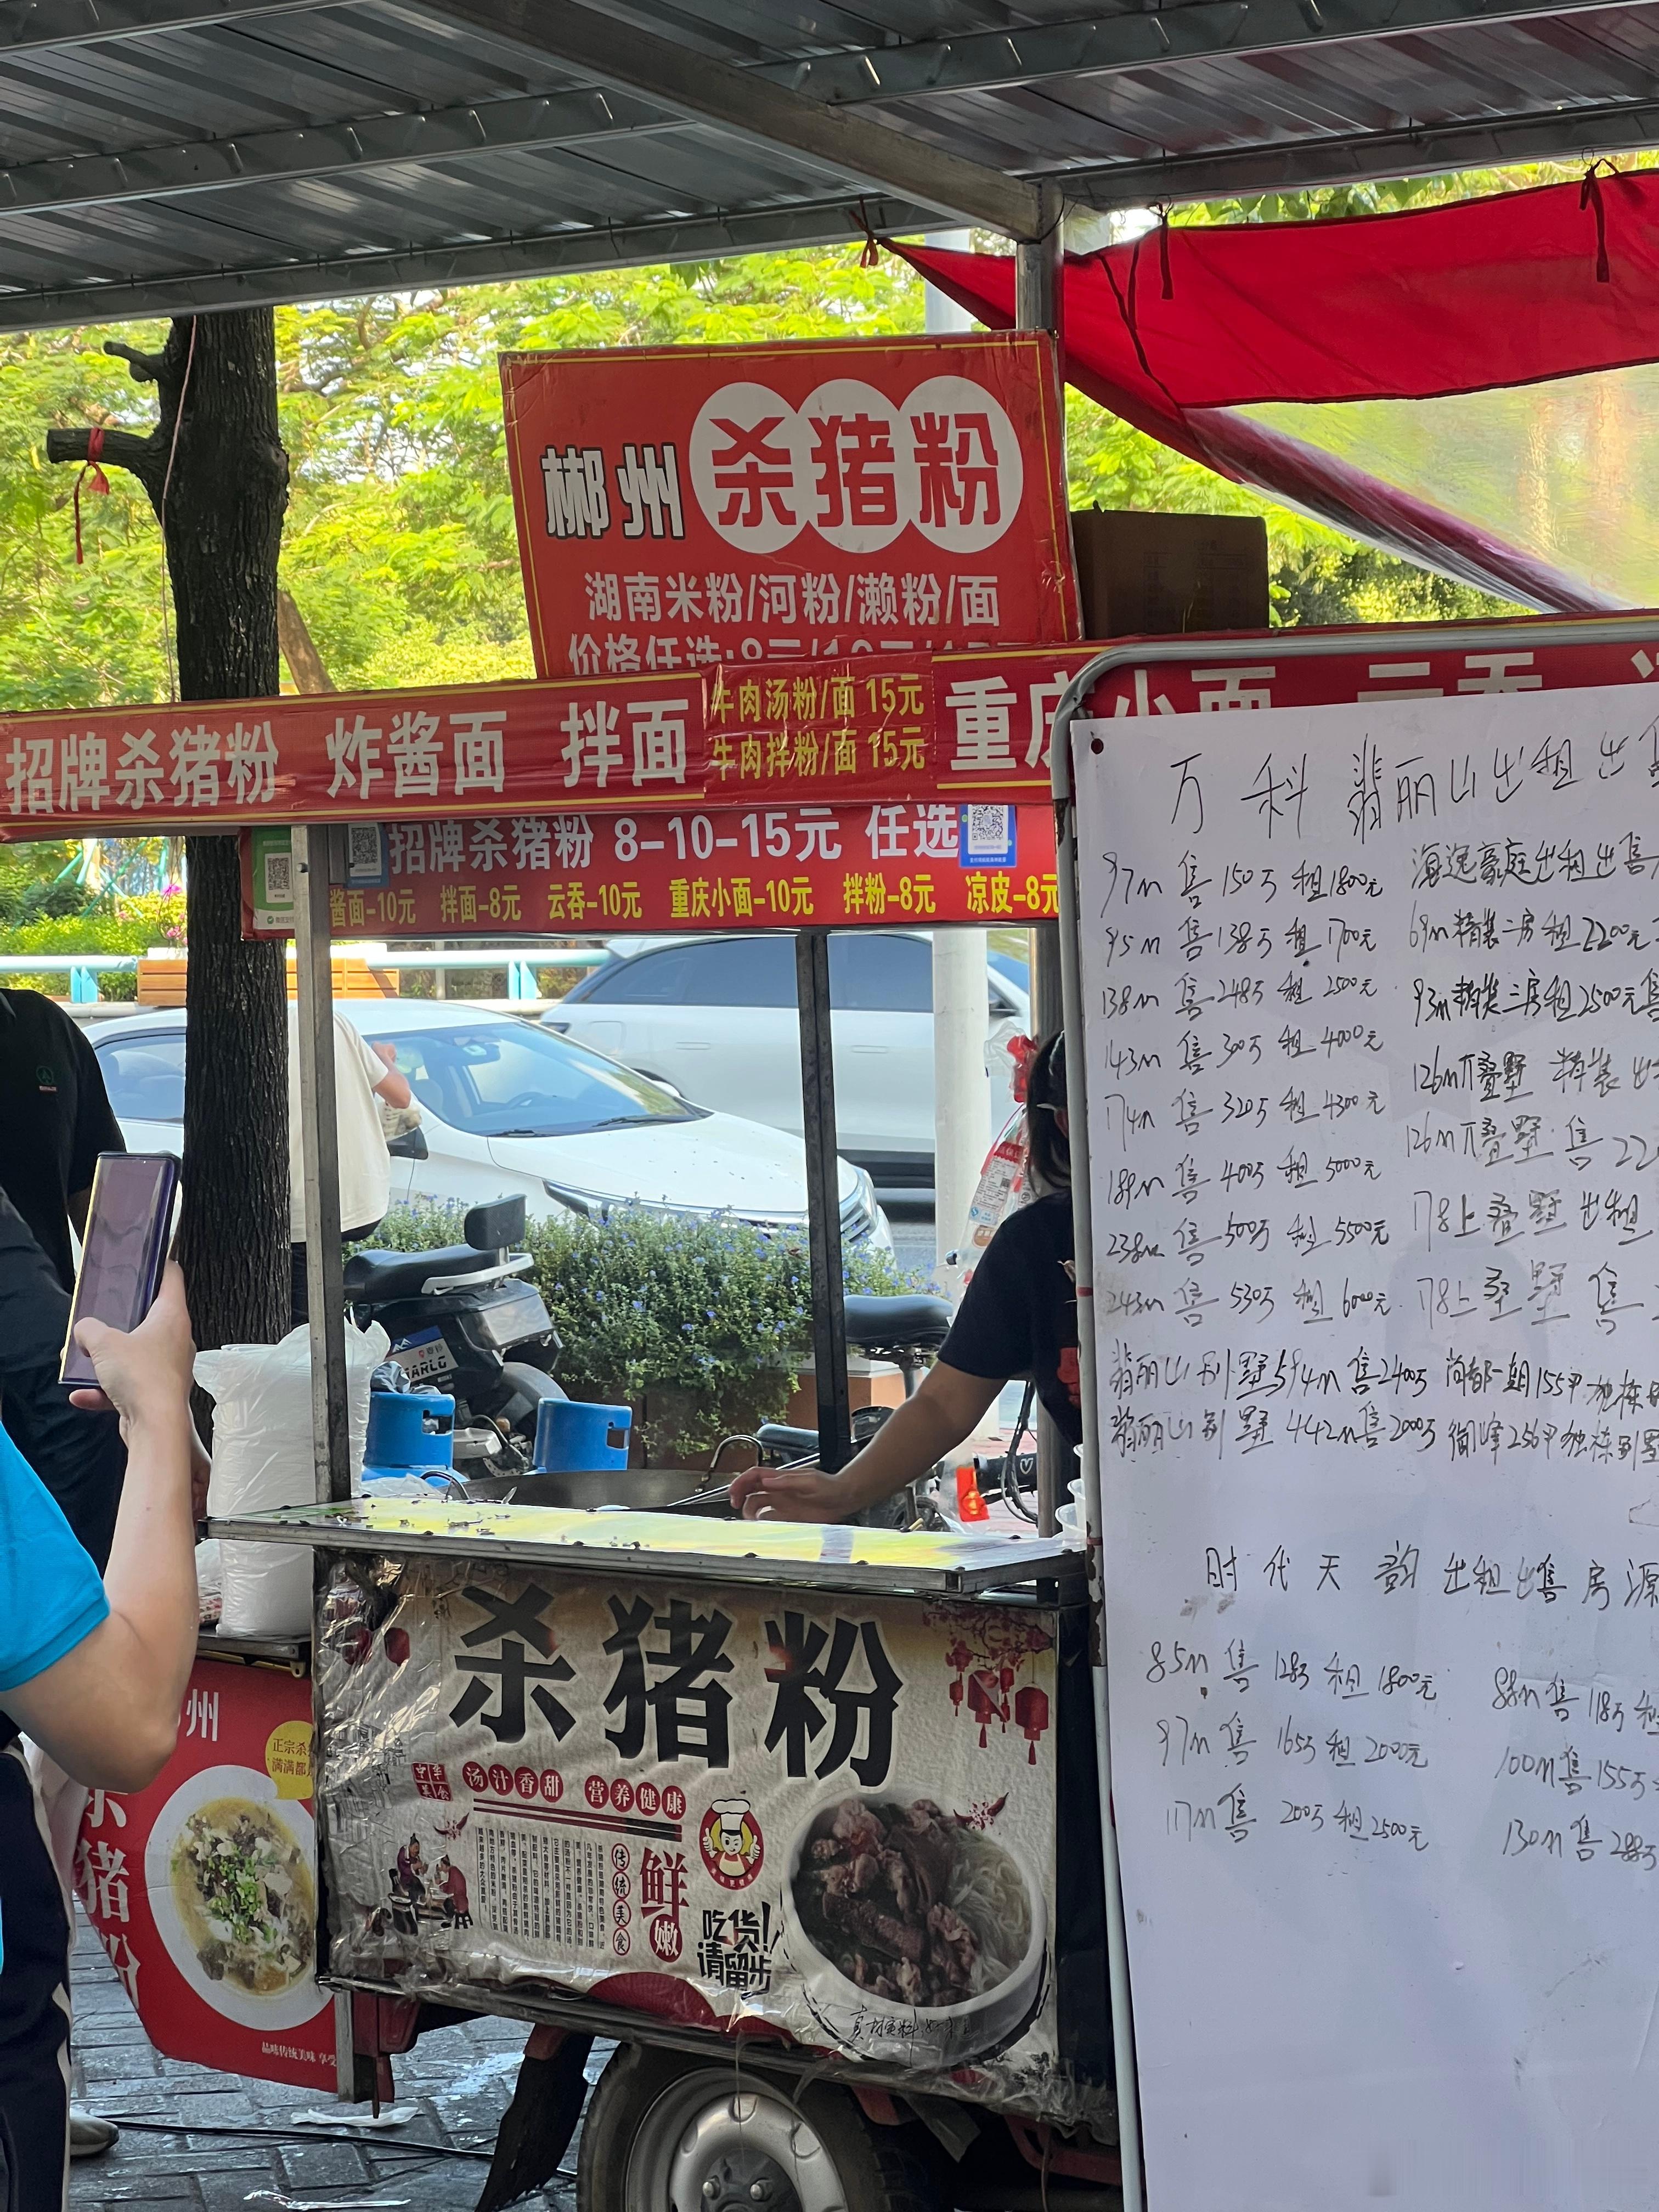 郴州 杀猪粉
湖南米粉/河粉/濑粉/面
价格任选:8元/10元/15元
招牌杀猪粉 炸酱面 拌面
牛肉汤粉/面 15元
牛肉拌粉/面 15元
重庆小面 云吞
招牌杀猪粉 8-10-15元 任选
酱面-10元 拌面-8元 云吞-10元 重庆小面-10元 拌粉-8元 凉皮-8元
杀猪粉
中华美食
汤汁香甜 营养健康
传统美食
鲜嫩
吃货!
请留步
州
正宗杀
满满都
杀猪粉
品味传统美味 享受
万科翡丽山出租出售
97m 售150万 租1800元
95m 售138万 租1700元
138m 售248万 租2500元
143m 售300万 租4000元
174m 售320万 租4300元
189m 售400万 租5000元
238m 售500万 租5500元
243m 售530万 租6000元
翡丽山别墅594m售2400万
翡丽山别墅442m售2000万
海逸豪庭出租出售
69m精装二房租2200元
93m精装三房租2500元售
126m 叠墅 精装出
126m 叠墅 售22
78上叠墅出租
78上叠墅售
尚都一期155平独栋
御峰256平独栋别墅
时代天韵出租出售房源
85m售128万租1800元
97m售165万租2000元
117m售200万租2500元
88m售118万租
100m售155万
130m售288万